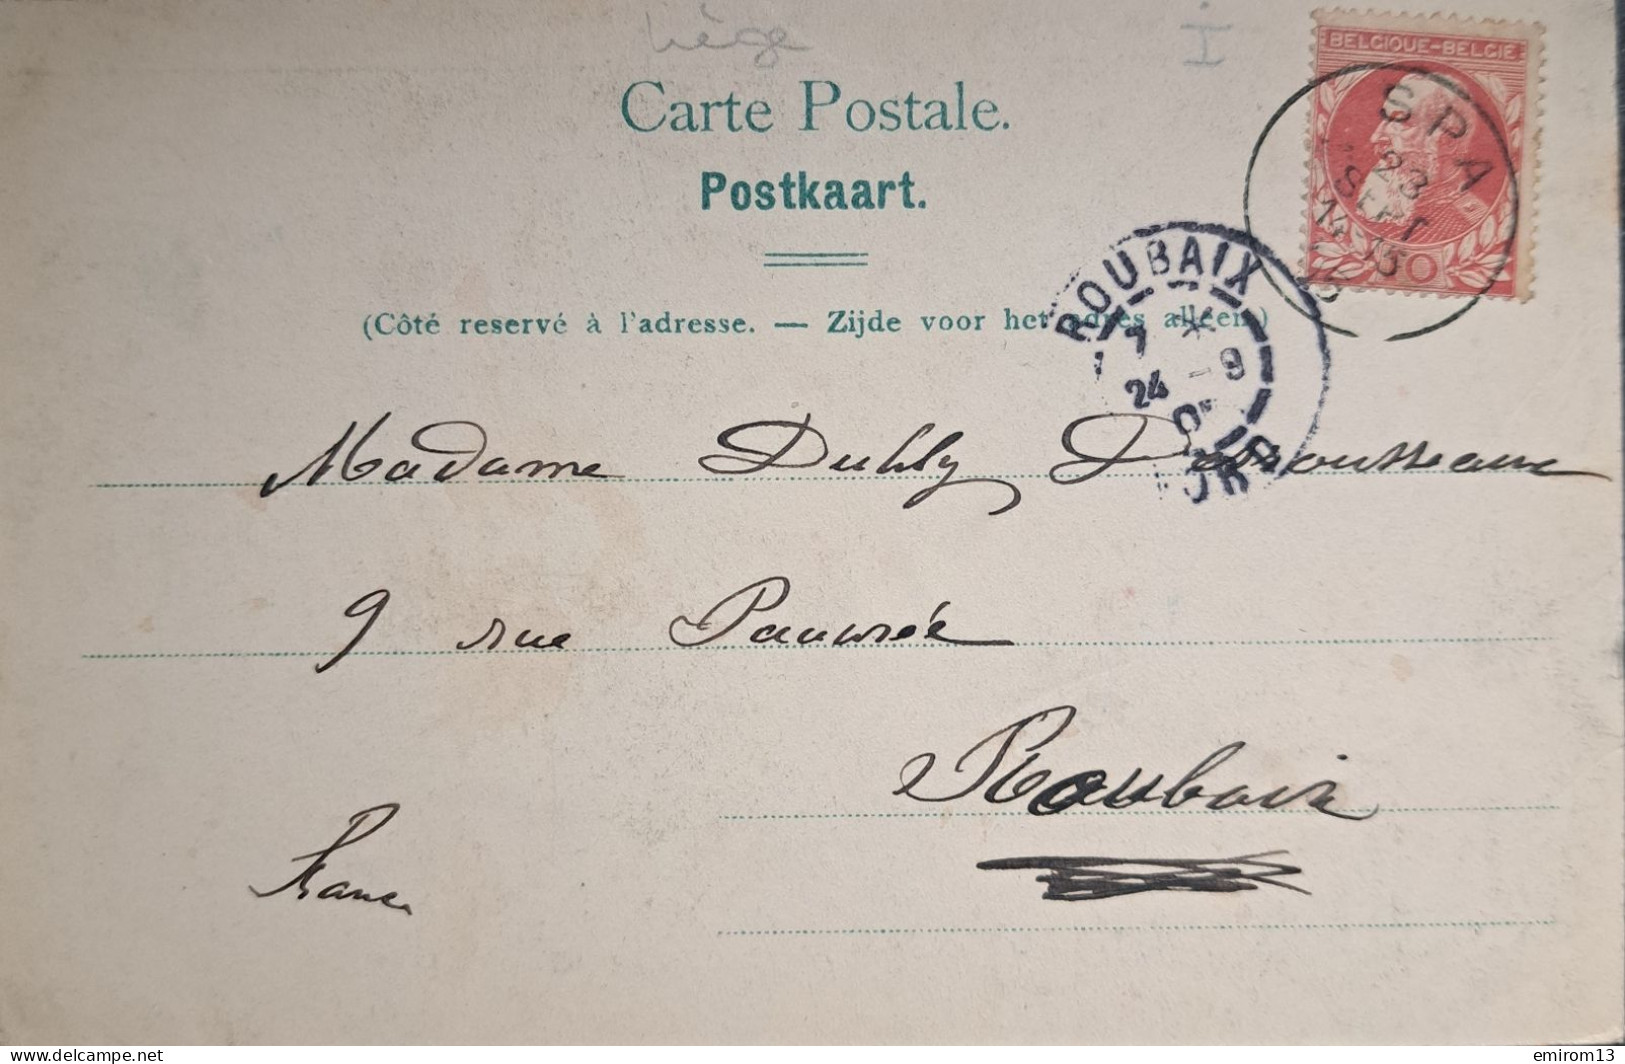 Liège
BELGIQUE-BELGIE
Carte Postale.
Postkaart.
SPA
23
SEPT
14-15
10
(Côté reservé à l'adresse. — Zijde voor het adres alleen.)
ROUBAIX
7 *
24 - 9
NORD
Madame
9 rue Pauvrée
Roubaix
France
delcampe.net
emirom13